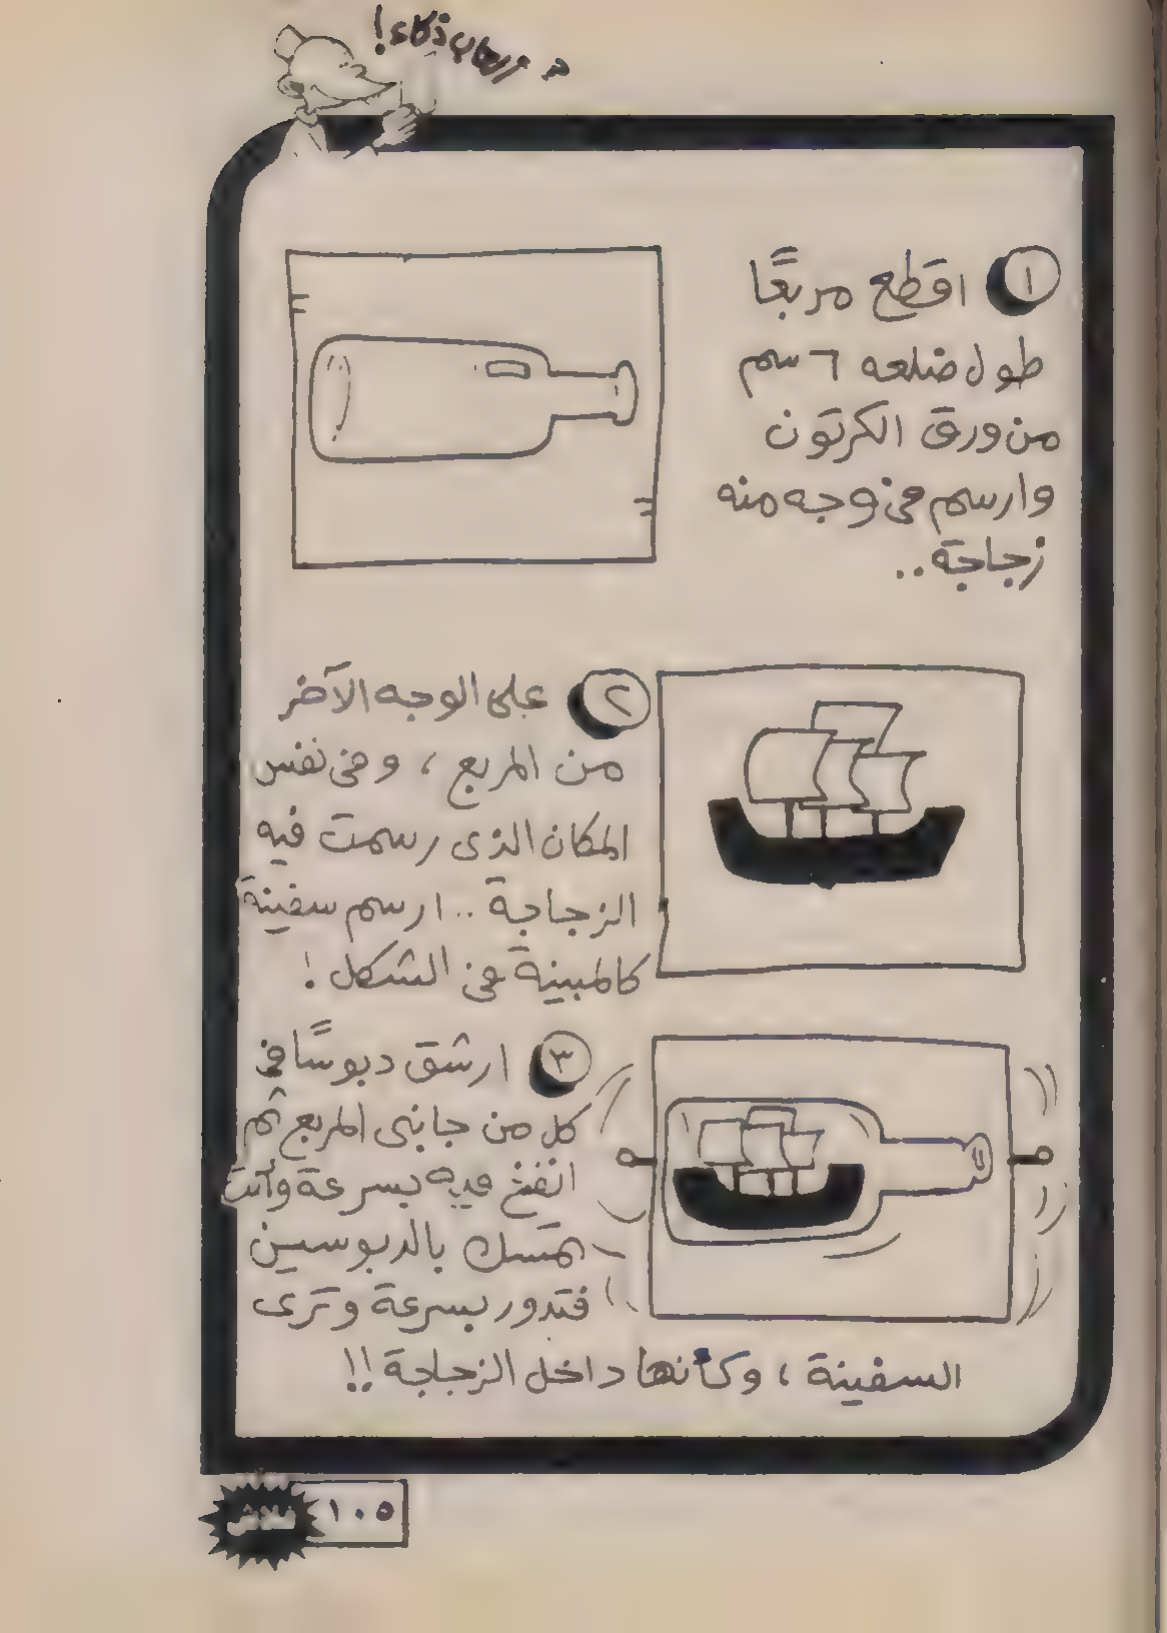 ١ اقطع مربعًا
طول ضلعه ٦ سم
من ورق الكرتون
وارسم فى وجه منه
زجاجة..
٢ على الوجه الآخر
من المربع ، وفى نفس
المكان الذى رسمت فيه
الزجاجة .. ارسم سفينة
كالمبينة فى الشكل !
٣ ارشق دبوسًا فى
كل من جانبى المربع ثم
انفخ فيه بسرعة وأنت
تمسك بالدبوسين
فتدور بسرعة وترى
السفينة ، وكأنها داخل الزجاجة !!
١٠٥
فلاش